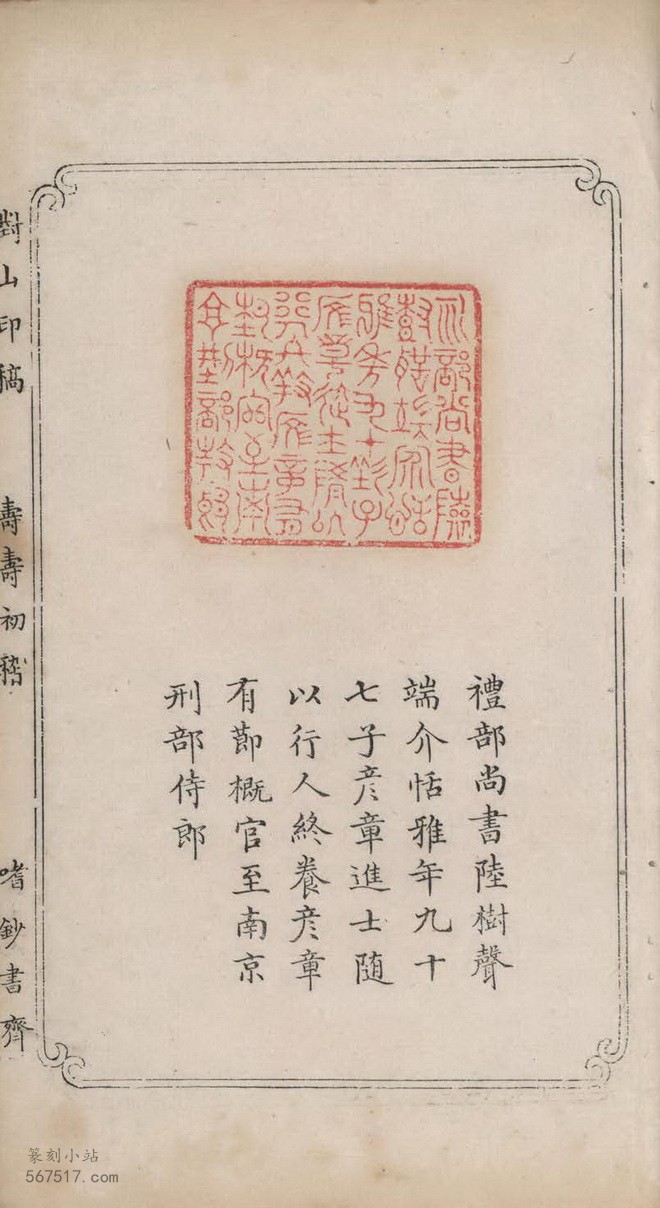 禮部尚書陸樹聲
端介恬雅年九十
七子彥章進士隨
以行人終養彥章
有節概官至南京
刑部侍郎
對山印稿 壽壽初稽
嗜鈔書齊
篆刻小站
567517.com